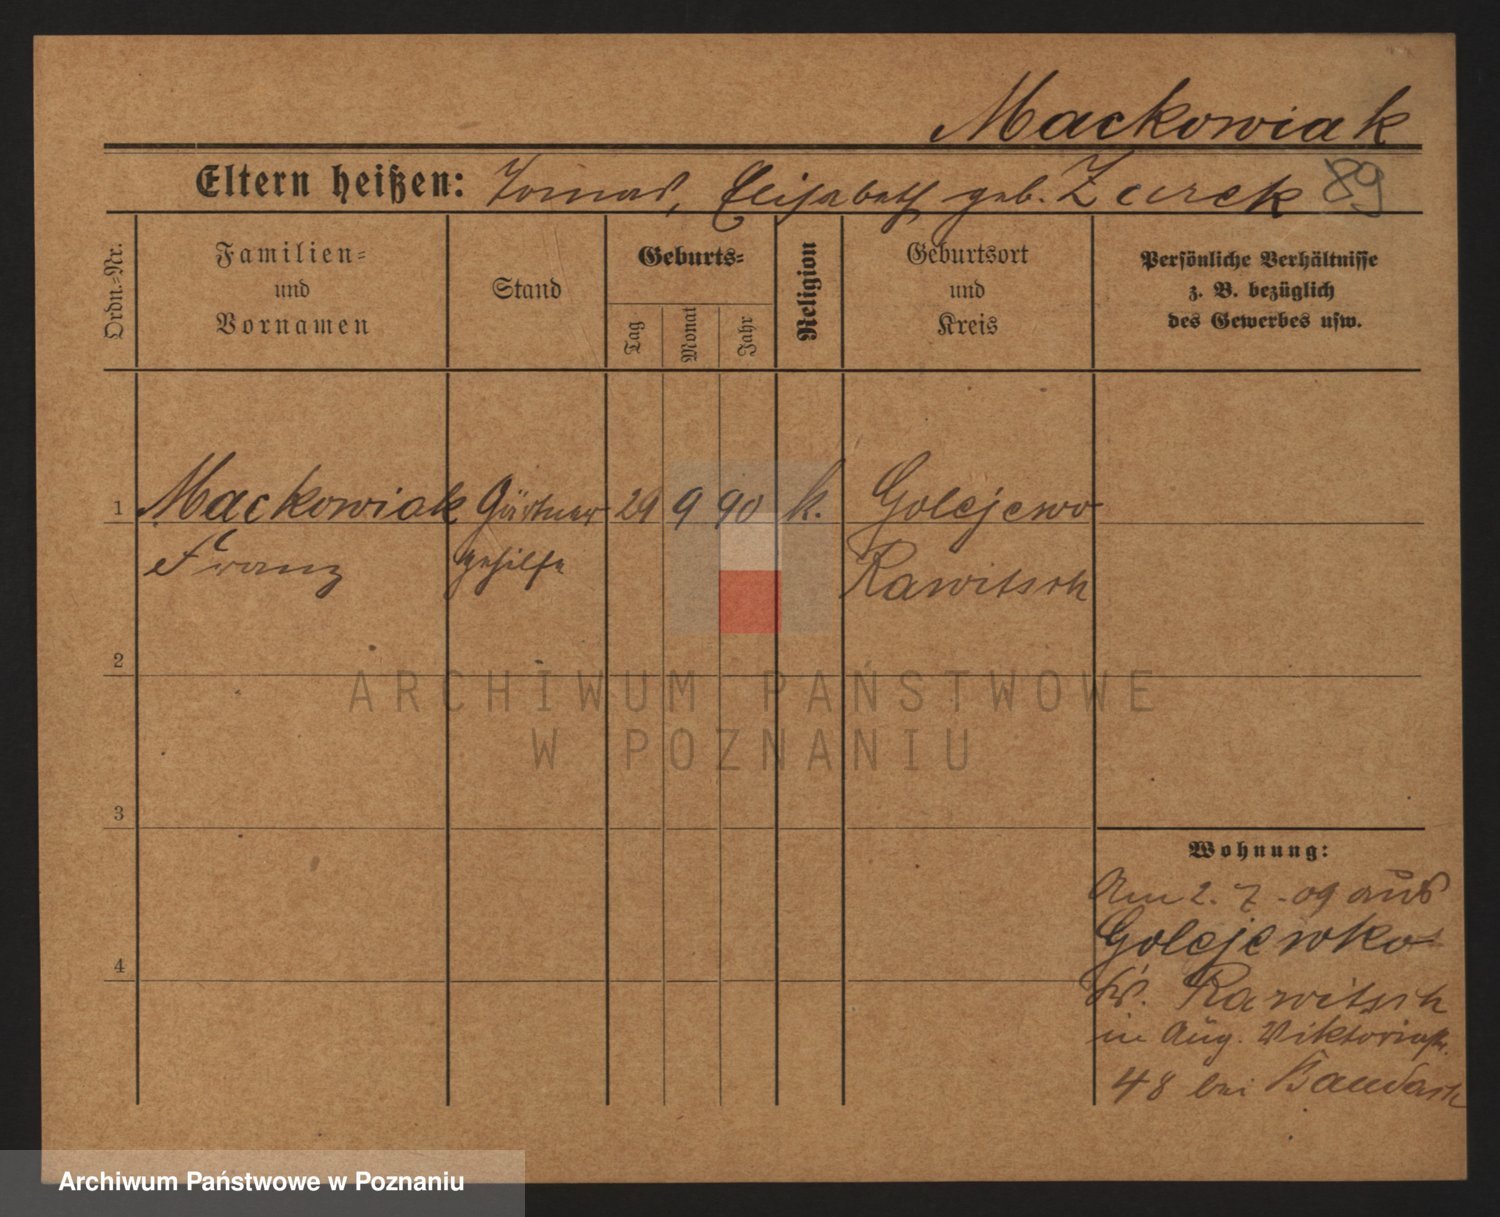 Mackowiak
Eltern heißen: Tomas, Elisabeth geb. Zurek 89
Ordn.-Nr.
Familien-
und
Vornamen
Stand
Geburts-
Tag
Monat
Jahr
Religion
Geburtsort
und
Kreis
Persönliche Verhältnisse
z. B. bezüglich
des Gewerbes usw.
1 Mackowiak Gärtner 29 9 90 k. Golejewo
Franz gehilfe Rawitsch
2
ARCHIWUM PAŃSTWOWE
W POZNANIU
3
Wohnung:
Am 2. 7. 09 aus
Golejewko
4
Kr. Rawitsch
in Aug. Viktoriastr.
48 bei
Archiwum Państwowe w Poznaniu